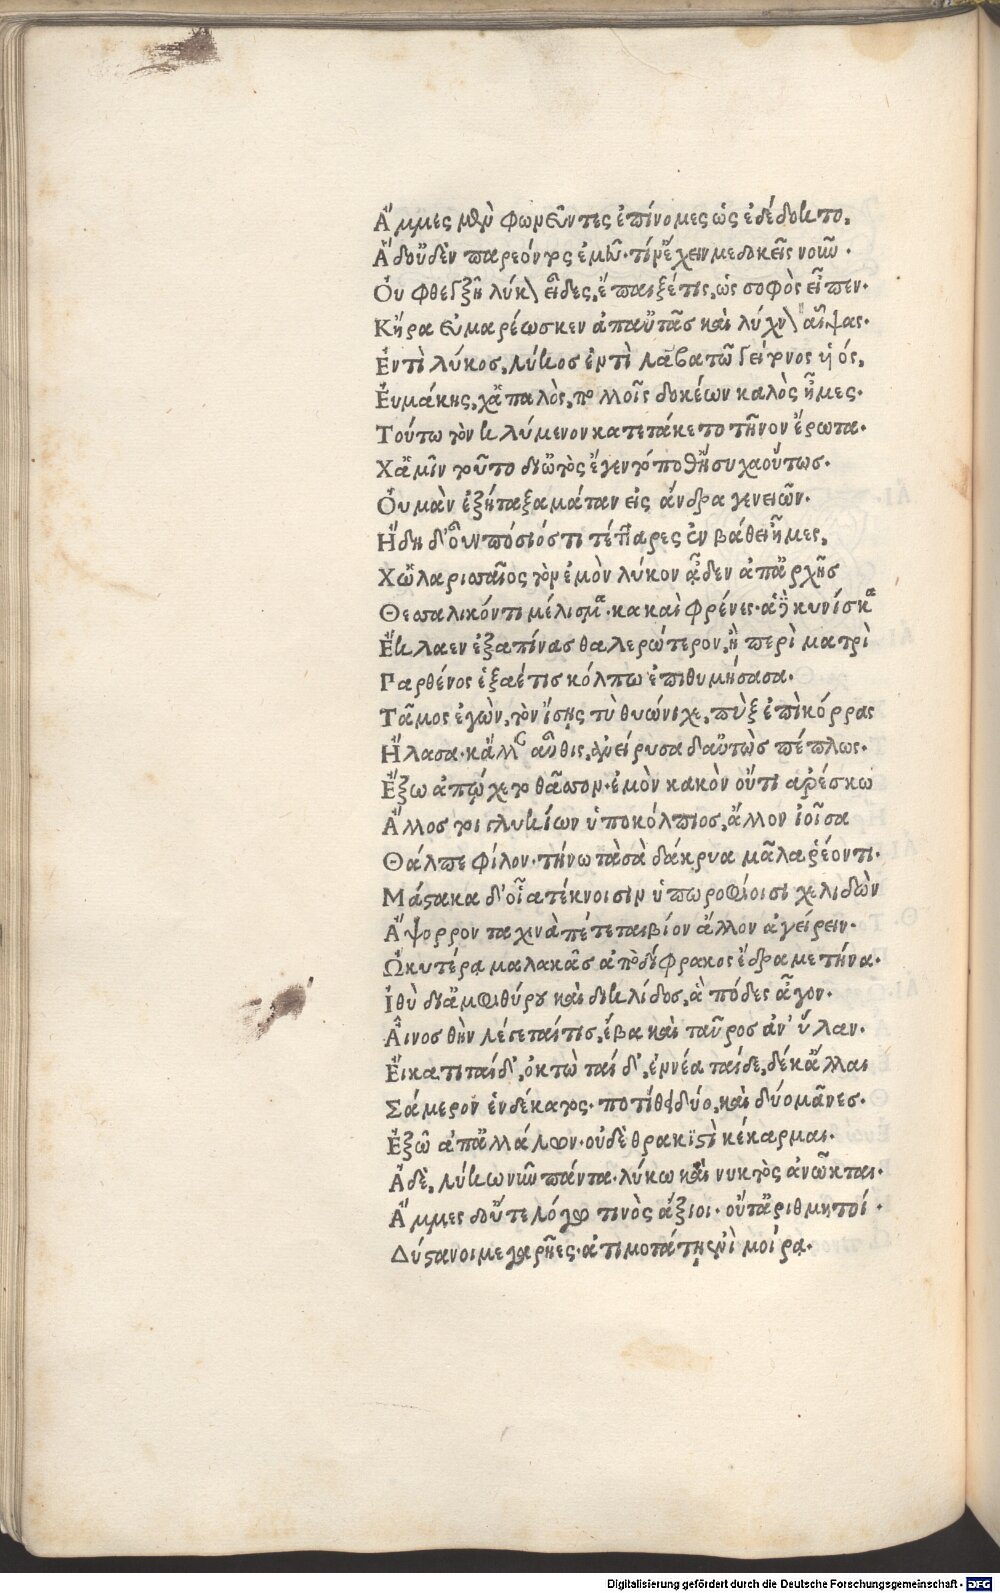 Ἄμμες μὲν φωνεῦντες ἐπίνομες ὡς ἐδέδοκτο.
Ἁ δ' οὐδὲν παρεόντος ἐμεῦ· τίν' ἔχειν με δοκεῖς νοῦν·
Οὐ φθεγξῇ λύκον εἶδες, ἔπαιξέ τις, ὡς σοφὸς εἶπεν·
Κἤρα εὐμαρέως κεν ἀπ' αὐτᾶς καὶ λύχνον ἆψας·
Ἐντὶ λύκος, λύκος ἐντὶ λάβα τῶ γείτονος ὑιός,
Ἐυμάκης, χἁπαλὸς, πολλοῖς δοκέων καλὸς ἦμες·
Τούτω τὸν κλύμενον κατετάκετο τῆνον ἔρωτα·
Χἄμῖν τοῦτο δι' ὠτὸς ἔγεντό ποθ' ἥσυχα οὕτως·
Οὐ μὰν ἐξήταξα μάταν εἰς ἄνδρα γενειῶν·
Ἤδη δ' ὦν πόσιός τι τέτταρες ἐν βάθει ἦμες,
Χὢ λαρισσαῖος τὸν ἐμὸν λύκον ᾆδεν ἀπ' ἀρχῆς
Θεσσαλικόν τι μέλισμα· κακαὶ φρένες· ἁ δὲ κυνίσκα
Ἔκλαεν ἐξαπίνας θαλερώτερον, ἢ περὶ ματρὶ
Παρθένος ἑξαέτις κόλπω ἐπιθυμήσασα·
Τᾶμος ἐγὼν, τὸν ἴσῃς τὺ θυώνιχε, πὺξ ἐπὶ κόρρας
Ἤλασα· κἄλλαν αὖθις, ἀνείρυσα δ' αὐτὼς πέπλως·
Ἔξω ἀπῴχετο θᾶσσον· ἐμὸν κακὸν οὔ τι ἀρέσκω
Ἄλλος τοι γλυκίων ὑποκόλπιος, ἄλλον ἰοῖσα
Θάλπε φίλον· τήνω τὰ σὰ δάκρυα μᾶλα ῥέοντι·
Μάστακα δ' οἷα τέκνοισιν ὑπωροφίοισι χελιδὼν
Ἄψορρον ταχινὰ πέτεται βίον ἄλλον ἀγείρειν·
Ὠκυτέρα μαλακᾶς ἀπὸ δίφρακος ἔδραμε τήνα·
Ἰθὺ δι' ἀμφιθύρου καὶ δικλίδος, ᾇ πόδες ἆγον·
Αἶνος θὴν λέγεταί τις, ἔβα καὶ ταῦρος ἀν' ὕλαν·
Ἔικατι ταίδ', ὀκτὼ ταίδ', ἐννέα ταίδε, δέκ' ἄλλαι
Σάμερον ἑνδέκατος· ποτίθει δύο, καὶ δύο μᾶνες·
Ἐξῶ ἀπ' ἀλλάλων· οὐδὲ θρακιστὶ κέκαρμαι·
Ἁδὲ, λύκω νῦν πάντα· λύκω καὶ νυκτὸς ἀνῷκται·
Ἄμμες δ' οὔτε λόγω τινὸς ἄξιοι· οὔτ' ἀριθμητοί·
Δύστανοι μεγαρῆες· ἀτιμοτάτῃ ἐνὶ μοίρᾳ·
Digitalisierung gefördert durch die Deutsche Forschungsgemeinschaft - DFG